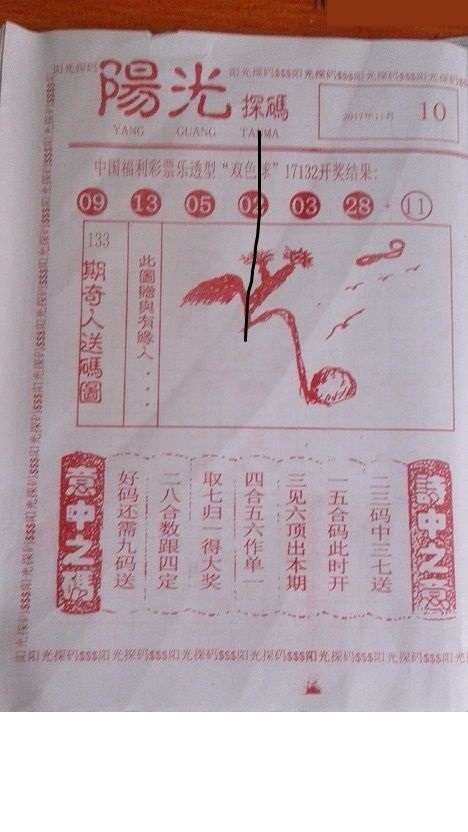 阳光探码 阳光探码$$$阳光探码$$$阳光探码$$$阳光探码
陽光 探碼
YANG GUANG TANMA
2017年11月 10
中国福利彩票乐透型“双色球”17132开奖结果:
09 13 05 02 03 28 + 11
133
期奇人送碼圖
此圖贈與有緣人....
詩中之意
二三码中三七送
一五合码此时开
三见六顶出本期
四合五六作单一
取七归一得大奖
二八合数跟四定
好码还需九码送
意中之碼
阳光探码$$$阳光探码$$$阳光探码$$$阳光探码$$$阳光探码$$$阳光探码